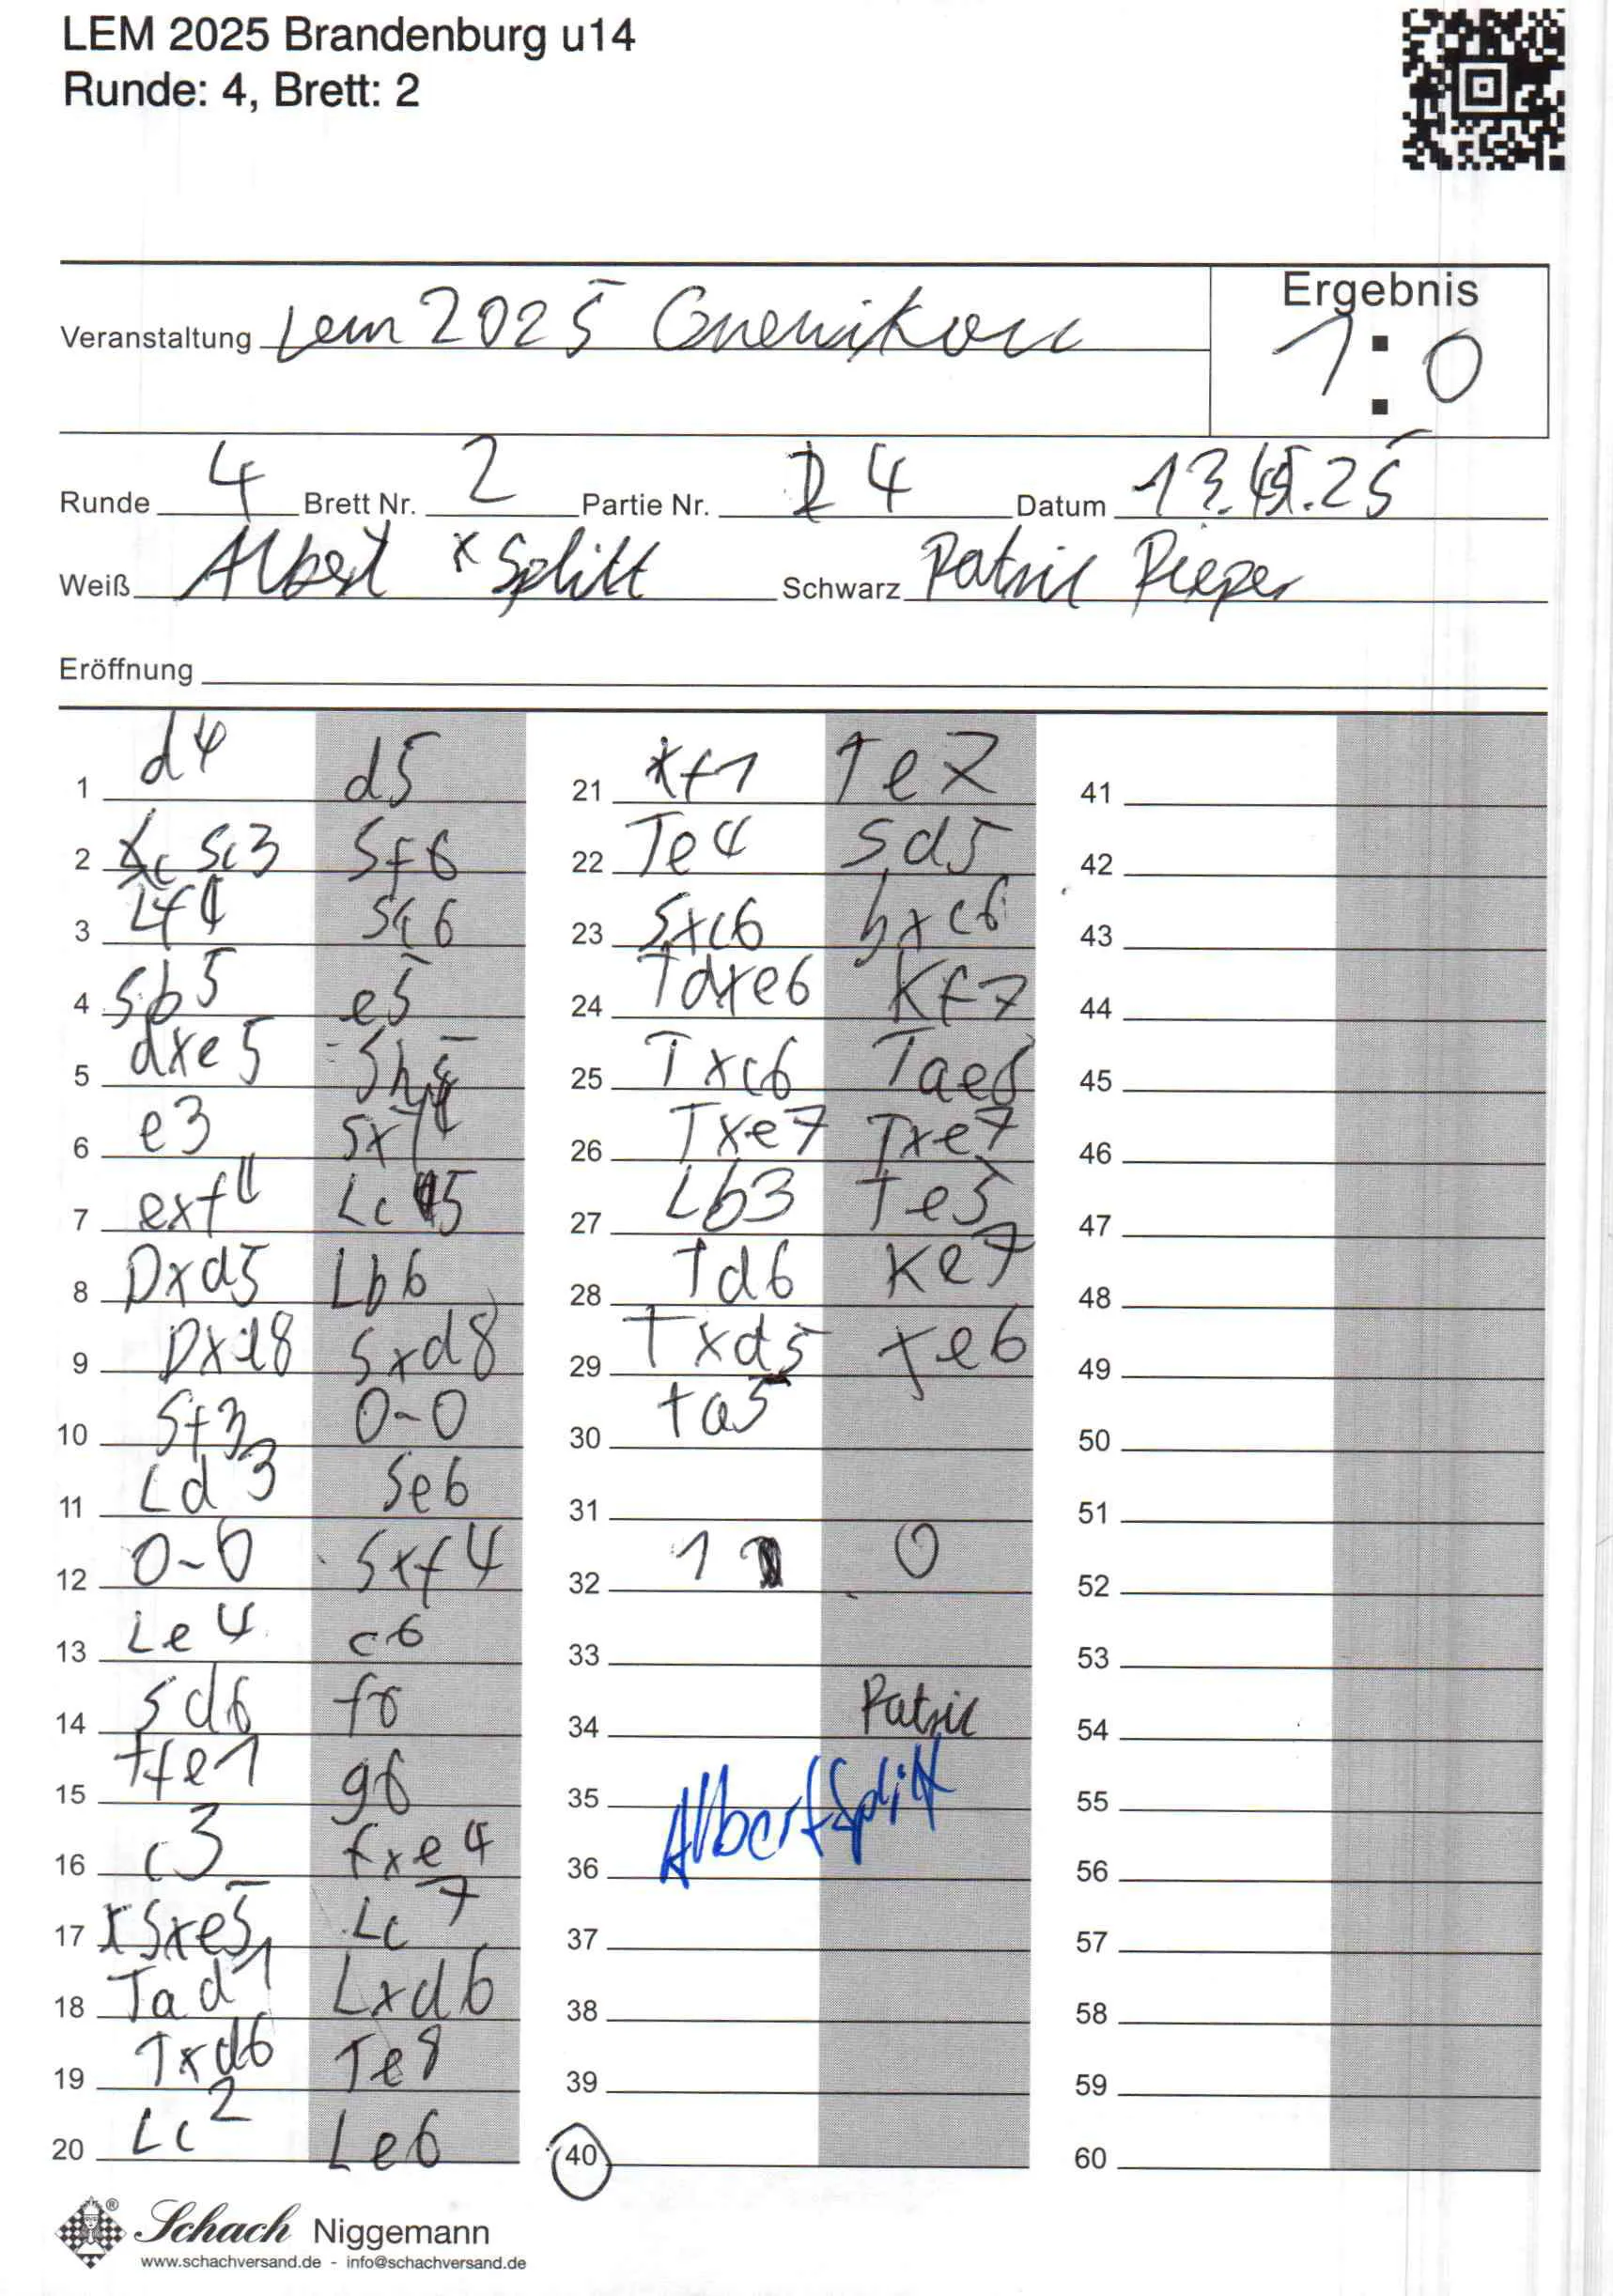 LEM 2025 Brandenburg u14
Runde: 4, Brett: 2
Ergebnis
1:0
Veranstaltung Lem 2025
Runde 4 Brett Nr. 2 Partie Nr. 4 Datum
Weiß Albert Splitt Schwarz Patric Pieper
Eröffnung
1 d4 d5
2 Sc3 Sf6
3 Lf4 Sc6
4 Sb5 e5
5 dxe5 Sh4
6 e3 Sxf4
7 exf4 Lc5
8 Dxd5 Lb6
9 Dxd8 Sxd8
10 Sf3 0-0
11 Ld3 Se6
12 0-0 Sxf4
13 Le4 c6
14 Sd6 f6
15 Tfe1 g6
16 c3 fxe4
17 Sxe5 Lc7
18 Tad1 Lxd6
19 Txd6 Te8
20 Lc2 Le6
21 Kf1 Te7
22 Te4 Sd5
23 Sxc6 bxc6
24 Tdxe6 Kf7
25 Txc6 Tae8
26 Txe7 Txe7
27 Lb3 Te5
28 Td6 Ke7
29 Txd5 Ke6
30 Ta5
31
32 1 0
33
34 Patric
35 Albert Splitt
36
37
38
39
40
41
42
43
44
45
46
47
48
49
50
51
52
53
54
55
56
57
58
59
60
Schach Niggemann
www.schachversand.de - info@schachversand.de